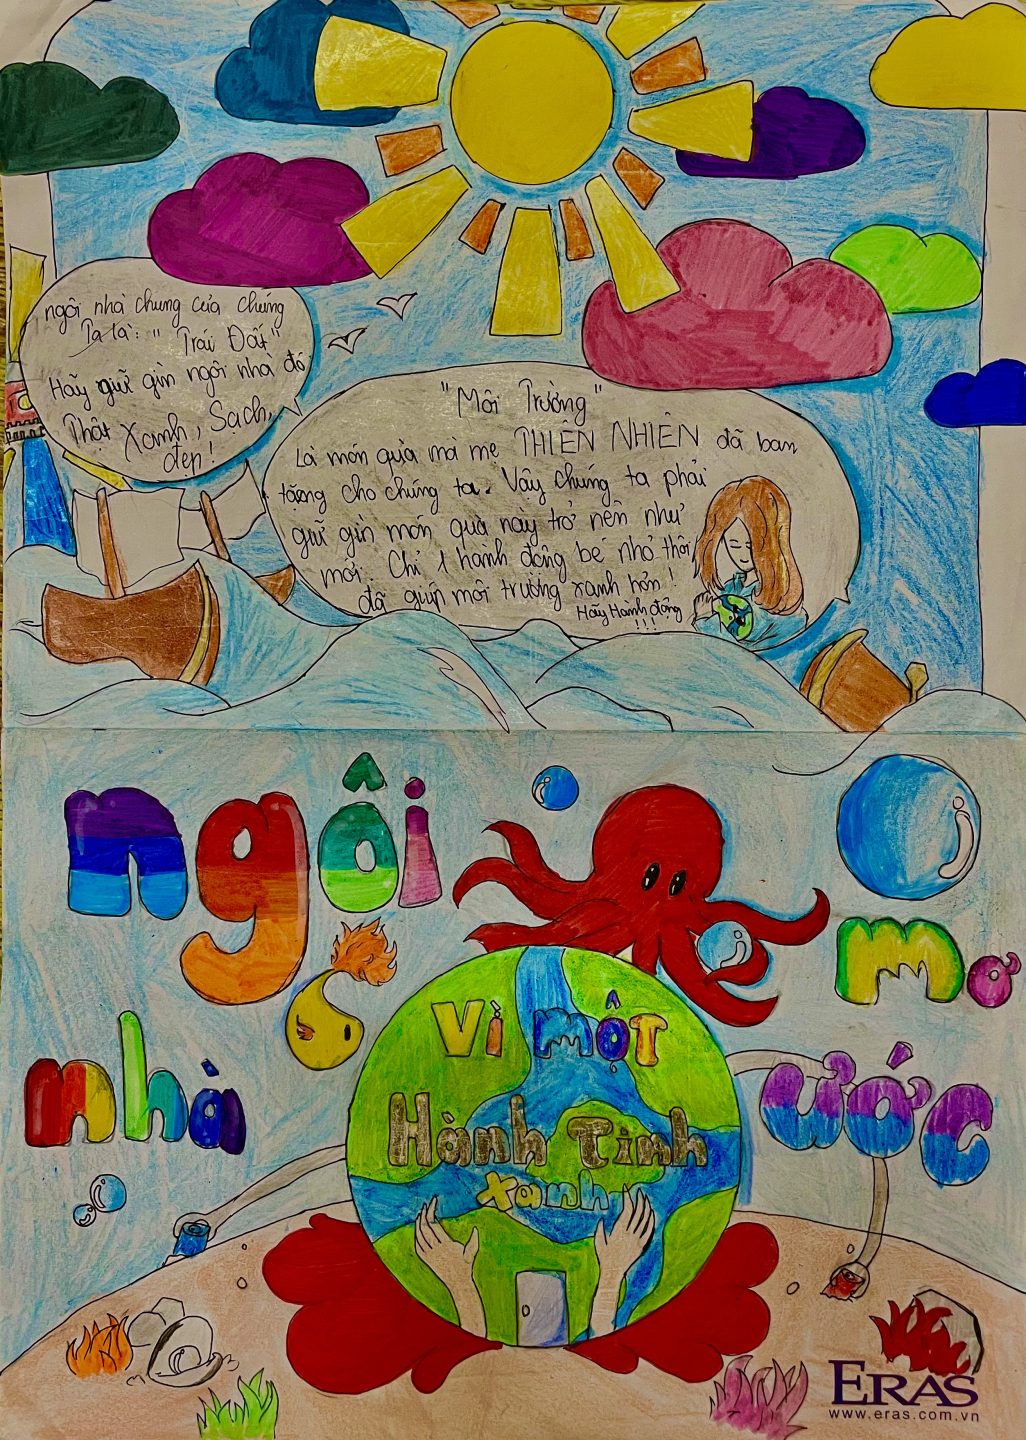 ngôi nhà chung của chúng
Ta là: "Trái Đất"
Hãy giữ gìn ngôi nhà đó
Thật Xanh, Sạch,
đẹp!
"Môi Trường"
Là món qùa mà mẹ THIÊN NHIÊN đã ban
tặng cho chúng ta. Vậy chúng ta phải
giữ gìn món quà này trở nên như
mới. Chỉ 1 hành động bé nhỏ thôi
đã giúp môi trường xanh hơn!
Hãy Hành động
!!!
ngôi
nhà
mơ
ước
Vì một
Hành Tinh
xanh
ERAS
www.eras.com.vn